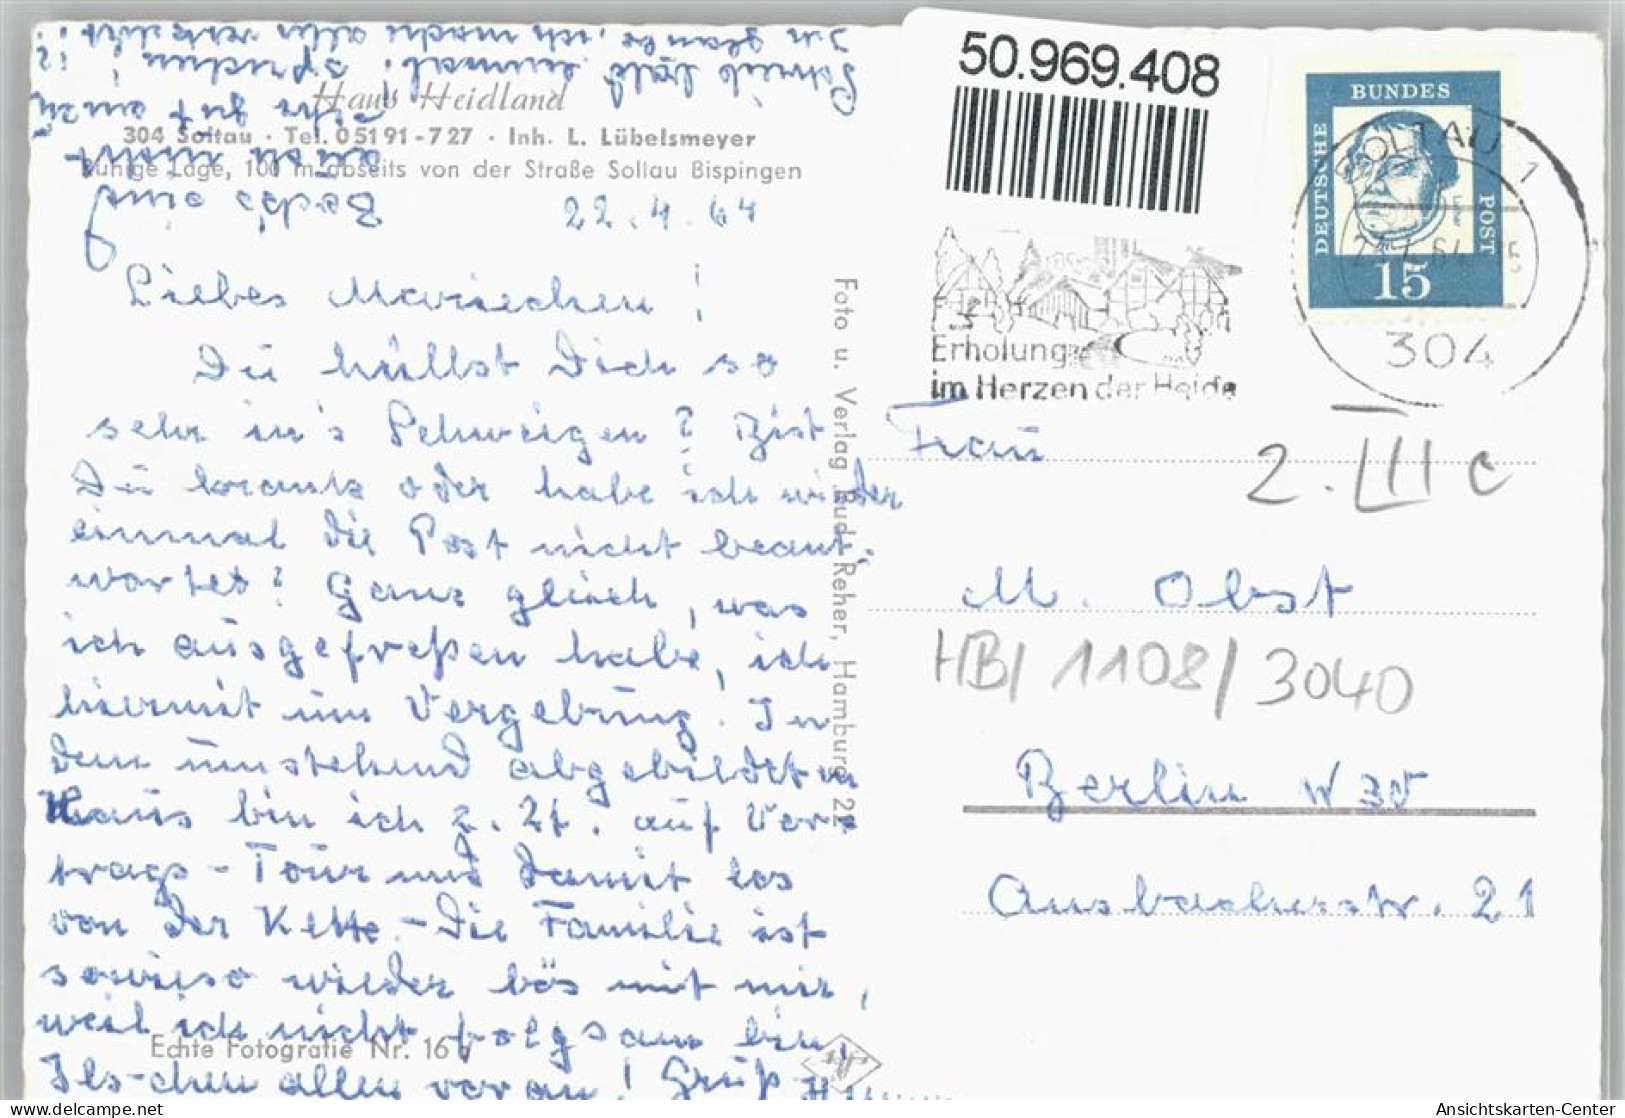 Haus Heidland
304 Soltau · Tel. 05191-727 · Inh. L. Lübelsmeyer
Ruhige Lage, 100 m abseits von der Straße Soltau Bispingen
22.4.64
Liebes Mariechen!
Du hüllst Dich so
sehr in's Schweigen? Bist
Du krank oder habe ich wieder
einmal die Post nicht beant-
wortet? Ganz gleich, was
ich ausgefreßen habe, ich
hiermit um Vergebung. In
dem umstehend abgebildeten
Haus bin ich z. Zt. auf Vor-
trags-Tour und damit los
von der Kette. - Die Familie ist
sowieso wieder bös mit mir,
weil ich nicht folgsam bin!
Ils-chen allen voran! Gruß
Schreib bald einmal!
Echte Fotografie Nr. 16
Foto u. Verlag Rud. Reher, Hamburg 22
50.969.408
Erholung
im Herzen der Heide
DEUTSCHE
BUNDES
POST
15
SOLTAU 1
304
2. III c
Frau
M. Obst
HBI 1108/3040
Berlin W 30
Ansbacherstr. 21
Ansichtskarten-Center